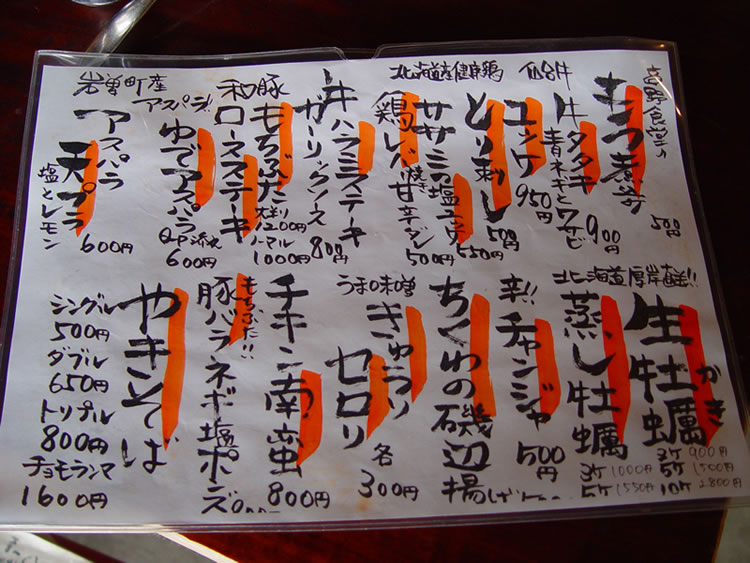 もつ煮込
500円
仙台牛
牛タタキ
青ネギとワサビ
900円
ユッケ
950円
北海道産健康鶏
とり刺し
500円
ササミの塩ユッケ
550円
鶏レバ焼き甘辛ダレ
500円
牛ハラミステーキ
ガーリックソース
800円
和豚
もちぶた
ロースステーキ
大盛り
1200円
ノーマル
1000円
アスパラ
ゆでアスパラ
QP添え
600円
アスパラ
天プラ
塩とレモン
600円
北海道厚岸直送!!
生牡蠣
かき
3ケ 900円
5ケ 1550円
10ケ 2800円
蒸し牡蠣
3ケ 1000円
5ケ 1550円
辛!!
チャンジャ
500円
ちくわの磯辺揚げ
うま味噌
きゅうり
セロリ
各
300円
チキン南蛮
800円
もちぶた!!
豚バラネギ塩ポンズ
やきそば
シングル
500円
ダブル
650円
トリプル
800円
チョモランマ
1600円